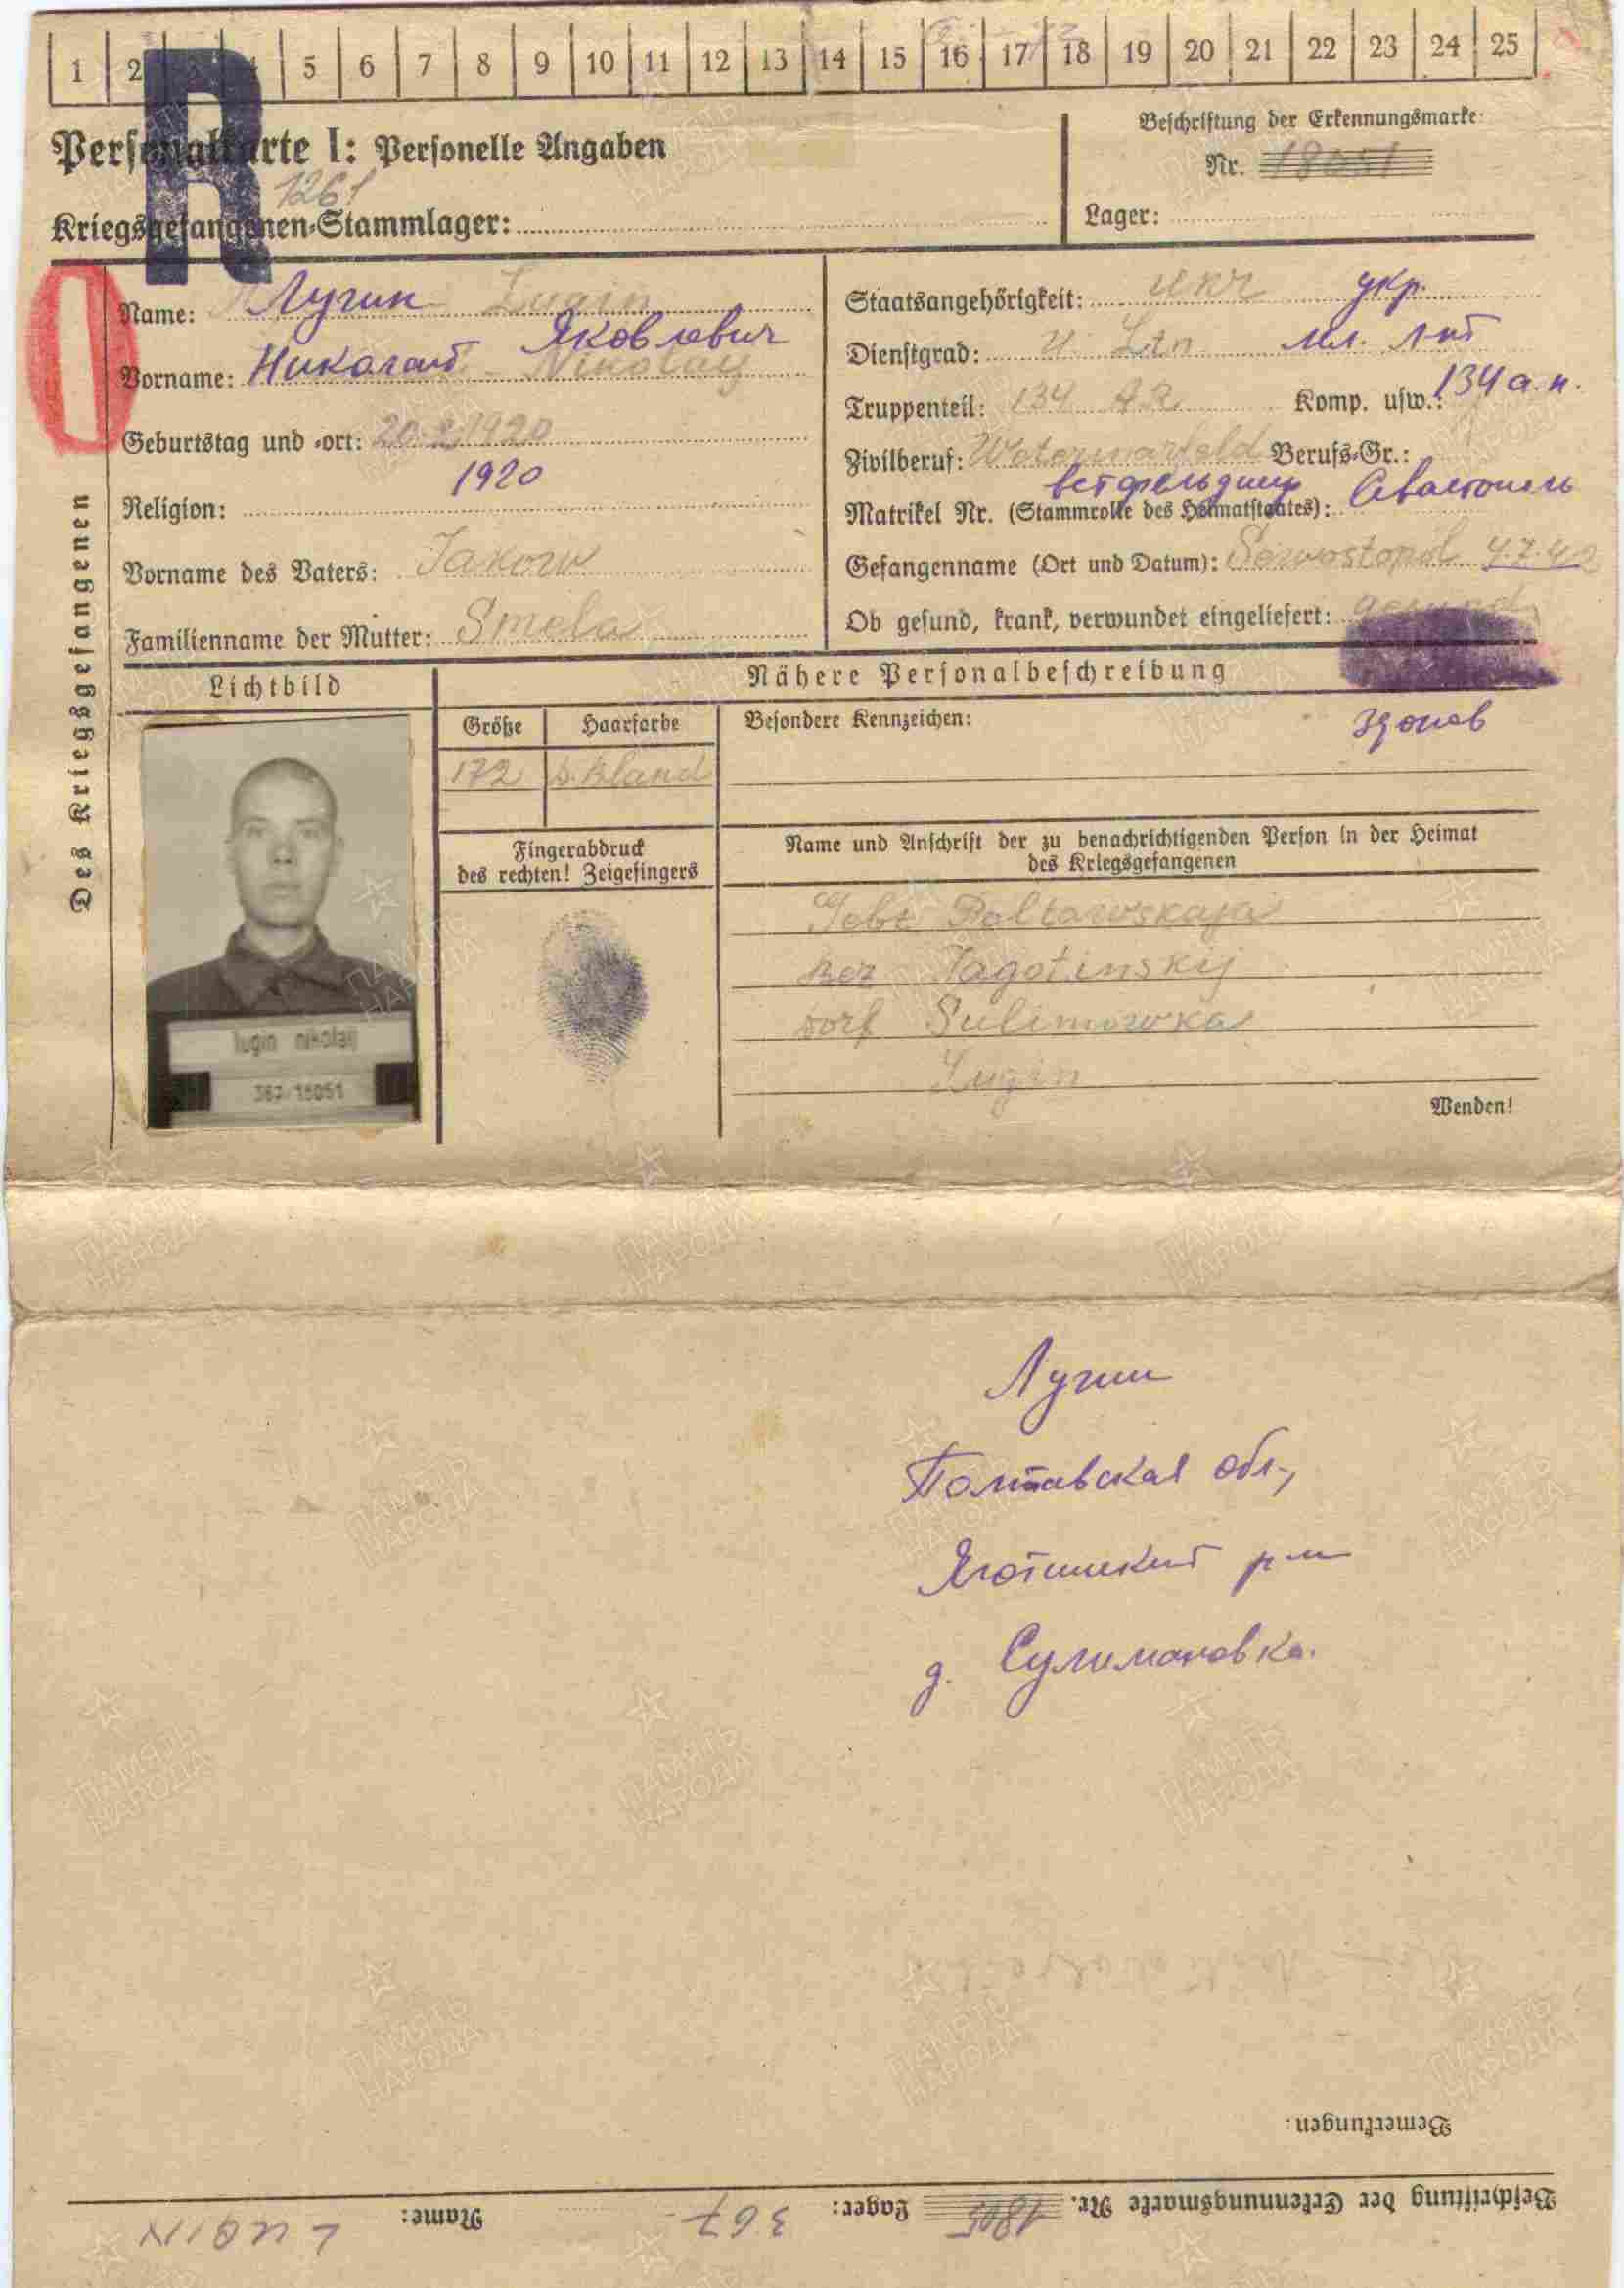 1 2 3 4 5 6 7 8 9 10 11 12 13 14 15 16 17 18 19 20 21 22 23 24 25
R
Personalkarte I: Personelle Angaben
Beschriftung der Erkennungsmarke
Nr. 18051
1261
Kriegsgefangenen-Stammlager:
Lager:
Des Kriegsgefangenen
Name: Лугин Lugin
Яковлевич
Vorname: Николай Nikolay
Geburtstag und -ort: 20.2.1920
1920
Religion:
Vorname des Vaters: Jakow
Familienname der Mutter: Smela
Staatsangehörigkeit: Ukr укр.
Dienstgrad: U. Ltn мл. лт
Truppenteil: 134 AR Komp. usw.: 134 а.п.
Zivilberuf: Berufs-Gr.:
ветфельдшер Севастополь
Matrikel Nr. (Stammrolle des Heimatstaates):
Gefangenname (Ort und Datum): Sewostopol 4.7.42
Ob gesund, krank, verwundet eingeliefert: gesund
здоров
Lichtbild
Nähere Personalbeschreibung
Größe Haarfarbe
Besondere Kennzeichen:
172 d. Bland
Fingerabdruck
des rechten! Zeigefingers
Name und Anschrift der zu benachrichtigenden Person in der Heimat
des Kriegsgefangenen
Gebt Poltawskaja
Rez Jagotinskij
Dorf Sulimowka
Lugin
lugin nikolaij
367/18051
Wenden!
Лугин
Полтавская обл.,
Яготинский р-н
д. Сулимановка.
Bemerkungen:
Beschriftung der Erkennungsmarke Nr. 1805 Lager: 367 Name: LUGIN
ПАМЯТЬ НАРОДА